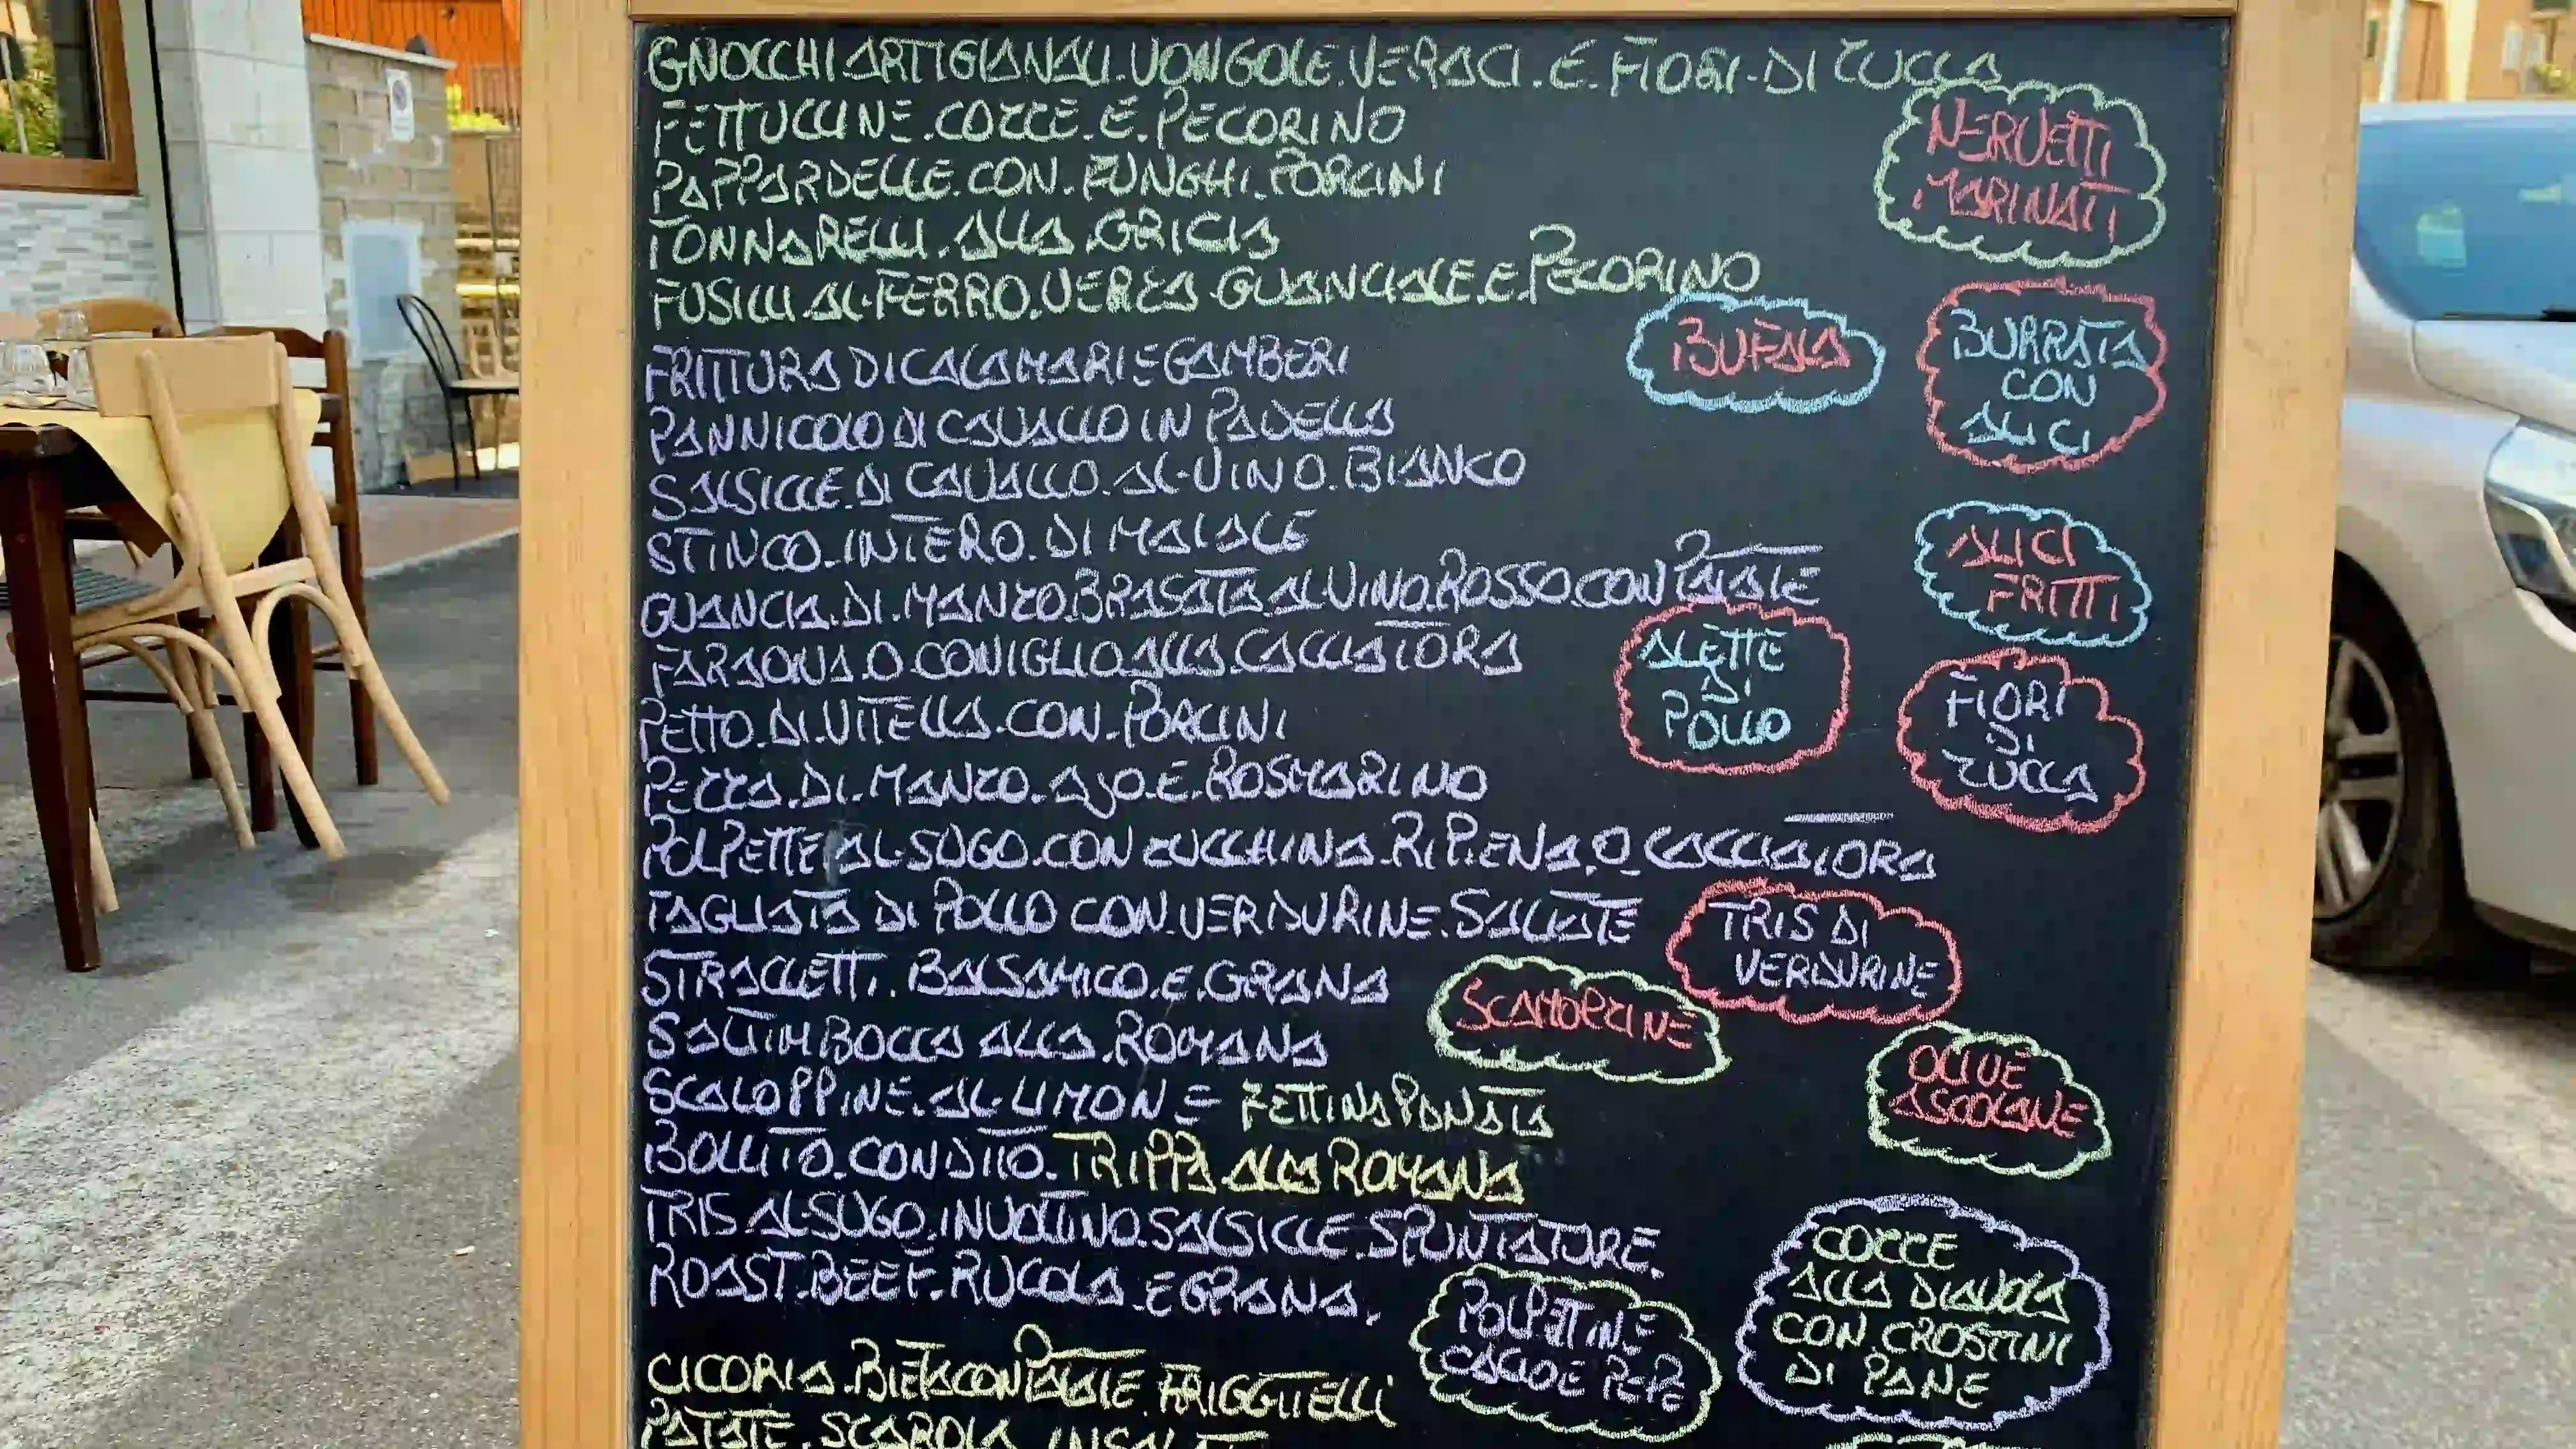 GNOCCHI ARTIGIANALI.VONGOLE.VERACI.E.FIORI.DI ZUCCA
FETTUCCINE.COZZE.E.PECORINO
PAPPARDELLE.CON.FUNGHI.PORCINI
TONNARELLI.ALLA.GRICIA
FUSILLI AL.FERRO.VERZA.GUANCIALE.E.PECORINO
NERVETTI
MARINATI
BUFALA
BURRATA
CON
ALICI
FRITTURA DI CALAMARI E GAMBERI
PANNICOLO DI CAVALLO IN PADELLA
SALSICCE.DI CAVALLO.AL.VINO.BIANCO
STINCO.INTERO.DI MAIALE
GUANCIA.DI.MANZO.BRASATA.AL VINO.ROSSO.CON PATATE
FARAONA.O.CONIGLIO ALLA.CACCIATORA
PETTO.DI.VITELLA.CON.PORCINI
PEZZA.DI.MANZO.AJO.E.ROSMARINO
POLPETTE AL.SUGO.CON ZUCCHINA.RIPIENA.O CACCIATORA
TAGLIATA DI POLLO CON.VERDURINE.SALTATE
STRACCETTI.BALSAMICO.E.GRANA
SALTIMBOCCA ALLA.ROMANA
SCALOPPINE.AL.LIMONE FETTINA PANATA
BOLLITO.CONDITO.TRIPPA ALLA ROMANA
TRIS AL.SUGO.INVOLTINO.SALSICCE.SPUNTATURE.
ROAST.BEEF.RUCOLA.E GRANA.
ALICI
FRITTI
ALETTE
DI
POLLO
FIORI
DI
ZUCCA
TRIS DI
VERDURINE
SCAMORZINE
OLIVE
ASCOLANE
COZZE
ALLA DIAVOLA
CON.CROSTINI
DI PANE
POLPETTINE
CACIO E PEPE
CICORIA.BIETA CON PATATE.FRIGGITELLI
PATATE.SCAROLA